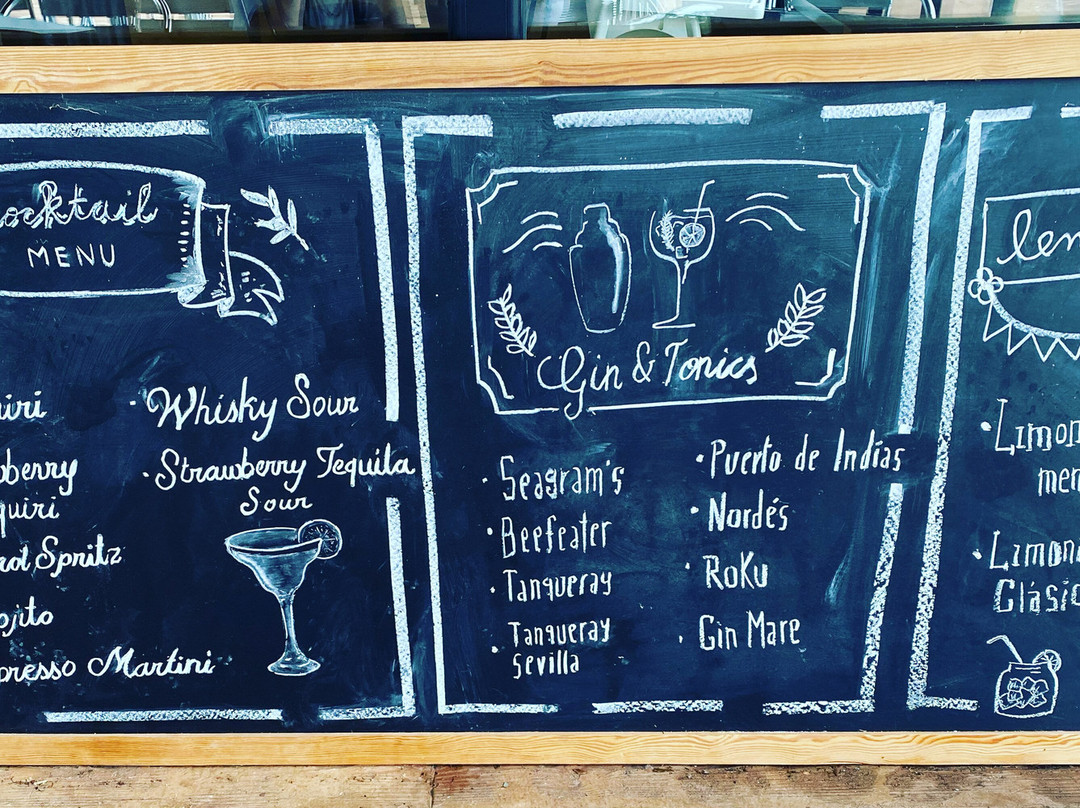 ocktail
MENU
iri
berry
quiri
rol Spritz
ojito
presso Martini
· Whisky Sour
· Strawberry Tequila
Sour
Gin & Tonics
· Seagram's
· Beefeater
· Tanqueray
· Tanqueray
Sevilla
· Puerto de Indias
· Nordés
· Roku
· Gin Mare
len
· Limon
men
· Limon
Clásic